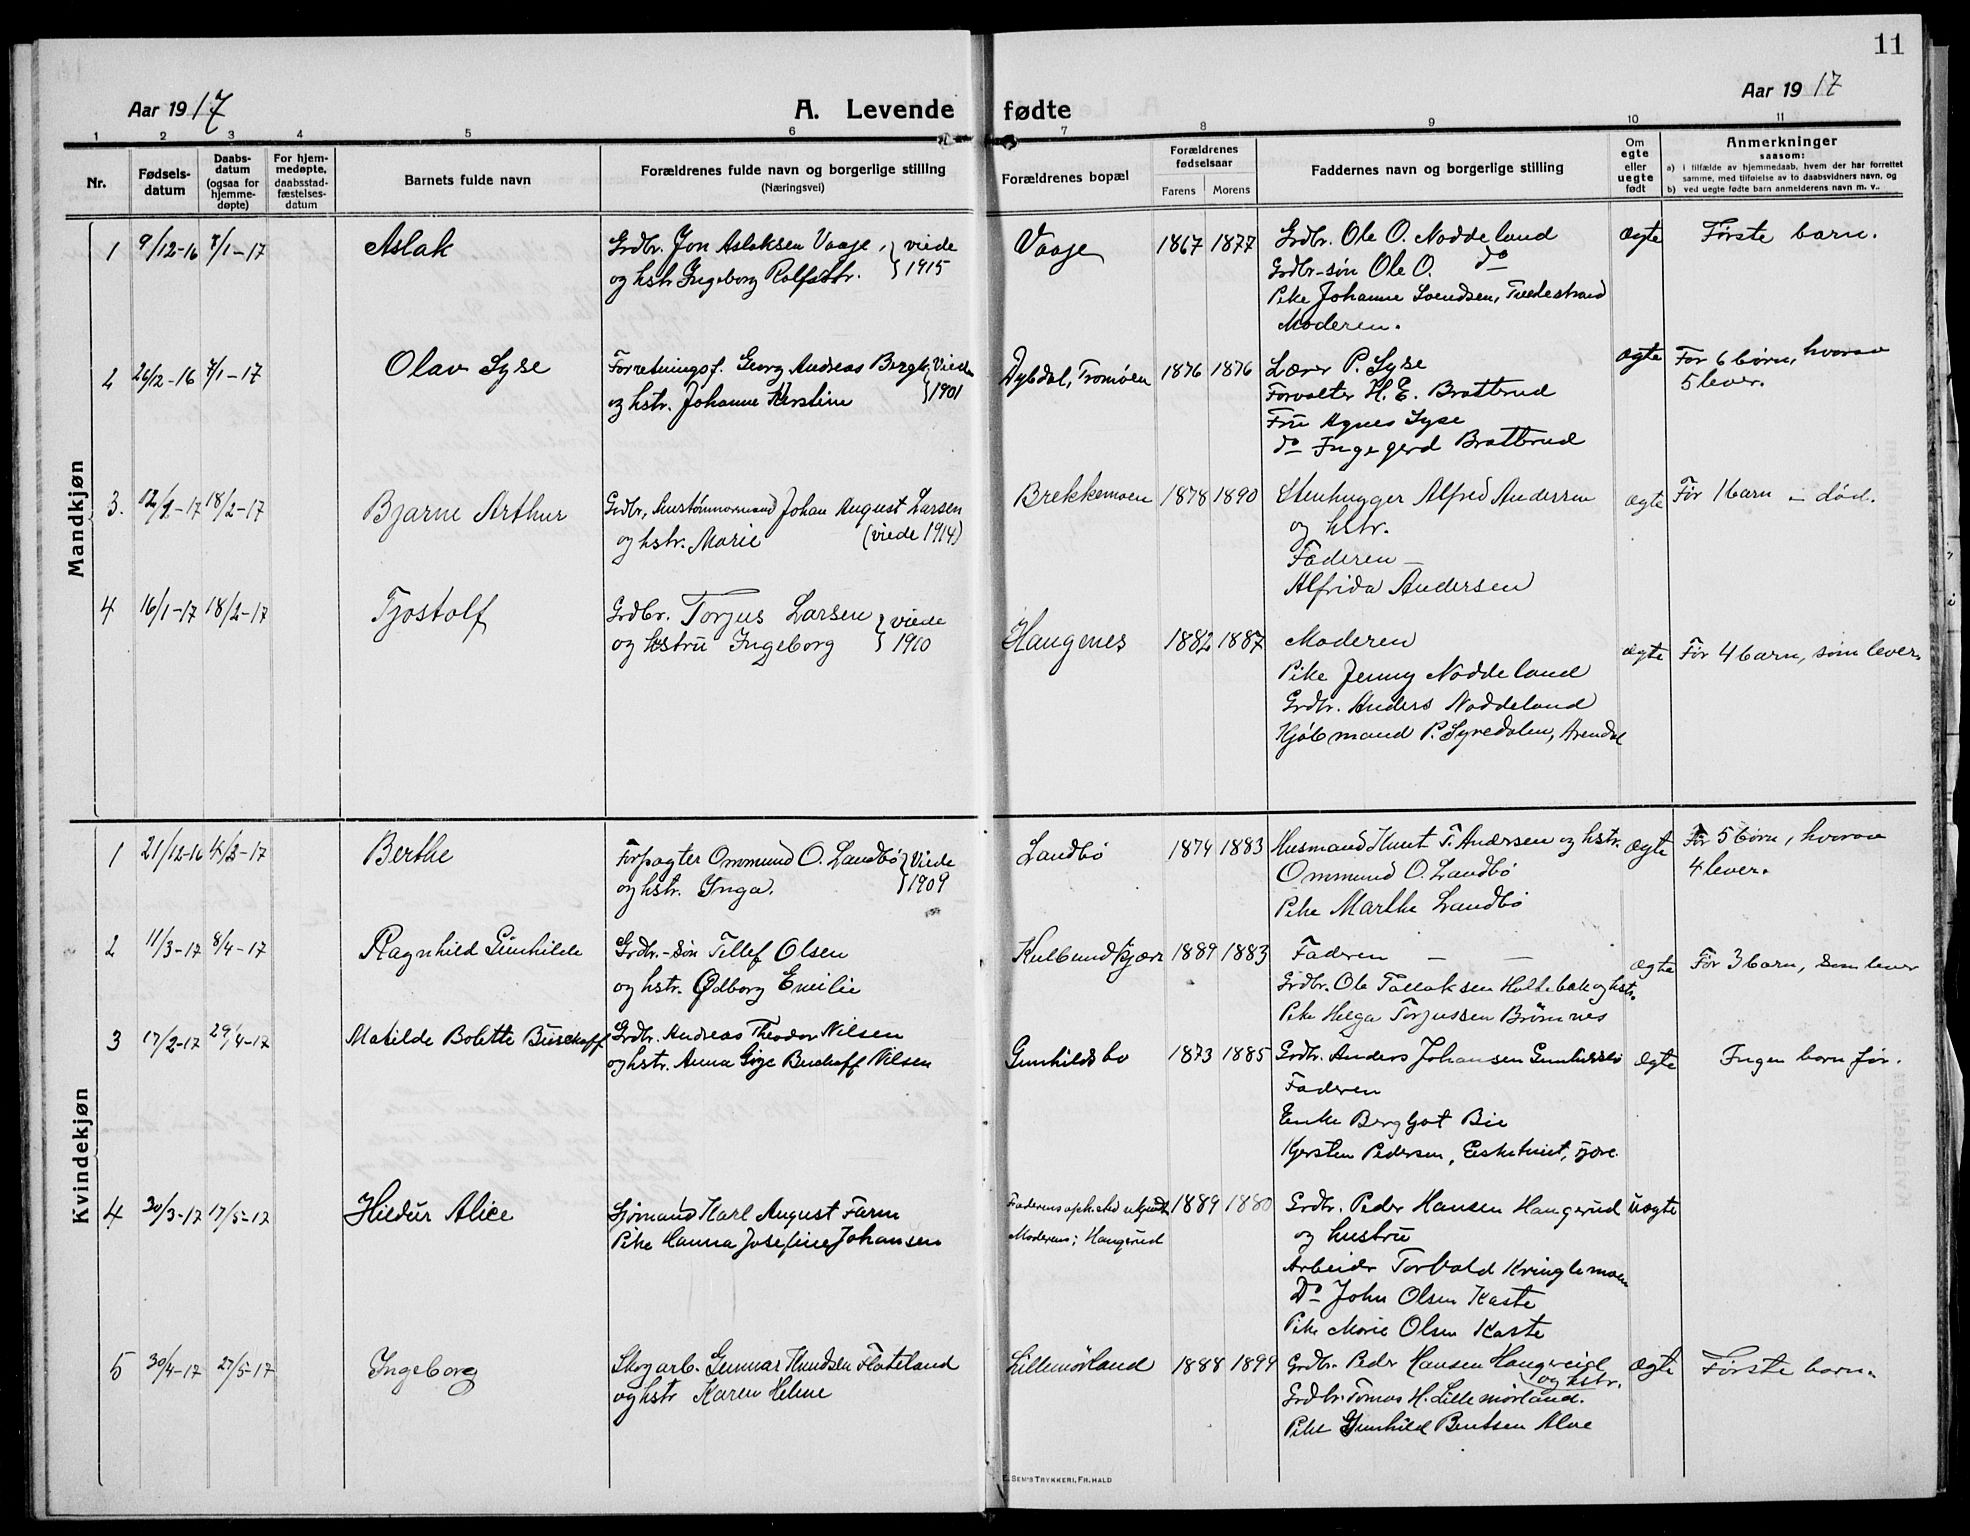 11
Aar 1917
A. Levende fødte
Aar 1917
1 2 3 4 5 6 7 8 9 10 11
Nr.
Fødsels-
datum
Daabs-
datum
(ogsaa for
hjemme-
døpte)
For hjem-
medøpte,
daabsstad-
fæstelses-
datum
Barnets fulde navn
Forældrenes fulde navn og borgerlige stilling
(Næringsvei)
Forældrenes bopæl
Forældrenes
fødselsaar
Farens Morens
Faddernes navn og borgerlige stilling
Om
egte
eller
uegte
født
Anmerkninger
saasom:
a) i tilfælde av hjemmedaab, hvem der har forrettet
samme, med tilføielse av to daabsvidners navn, og
b) ved uegte fødte barn anmelderens navn m. v..
Mandkjøn
1 9/12-16 7/1-17 Aslak
Grdbr. Jon Aslaksen Vaaje, viede
og hstr Ingeborg Rolfsdtr. 1915
Vaaje 1867 1877
Grdbr. Ole O. Noddeland
Grdbr-søn Ole O. do
Pike Johanne Svendsen, Tvedestrand
Moderen.
ægte Første barn.
2 26/2-16 7/1-17 Olav Syse
Forretningsf. Georg Andreas Bergh, Viede
og hstr. Johanne Kirstine 1901
Dybdal, Tromøen 1876 1876
Lærer P. Syse
Forvalter H. E. Brattrud
Fru Agnes Syse
do Ingegerd Brattrud
ægte Før 6 børn, hvorav
5 lever.
3. 12/1-17 18/2-17 Bjarne Arthur
Grdbr, Johan August Larsen
og hstr. Marie (viede 1914)
Brekkemoen 1878 1890
Stenhugger Alfred Andersen
og hstr.
Faderen
Alfrida Andersen
ægte Før 1 barn - død.
4 16/1-17 18/2-17 Tjostolf
Grdbr. Torjus Larsen viede
og hstru Ingeborg 1910
Haugenes 1882 1887
Moderen
Pike Jenny Noddeland
Grdbr. Anders Noddeland
Kjøbmand P. Syredalen, Arendal
ægte Før 4 barn, som lever.
Kvindekjøn
1 21/12-16 4/3-17 Berthe
Forpagter Ommund O. Landbø Viede
og hstr. Inga. 1909
Landbø 1874 1883
Husmand Knut T. Andersen og hstr.
Ommund O. Landbø
Pike Marthe Landbø
ægte Før 5 børn, hvorav
4 lever.
2 11/3-17 8/4-17 Ragnhild Gunhilde
Grdbr.-søn Tellef Olsen
og hstr. Ødborg Emilie
Kulbundkjær 1889 1883
Faderen
Grdbr. Ole Tallaksen Holtebæk og hstr.
Pike Helga Torjussen Brømnes
ægte Før 3 barn, som lever
3 17/2-17 29/4-17 Matilde Bolette Buschoff
Grdbr. Andreas Theodor Nilsen
og hstr. Anna Goze Buschoff Nilsen
Gunhildsbo 1873 1885
Grdbr. Anders Johansen Gunhildsbo
Faderen
Enke Bergljot Bie
Kjersten Pedersen,
ægte Ingen barn før.
4 30/3-17 17/5-17 Hildur Alice
Sjømand Karl August Farm
Pike Hanna Josefine Johansen
Faderens opholdsted ukjendt
Moderens; Haugerud
1889 1880
Grdbr. Peder Hansen Haugerud
og hustru
Arbeider Torvald Kringlemoen
Do John Olsen Kaste
Pike Marie Olsen Kaste
uægte
5 30/4-17 27/5-17 Ingeborg
Skogarb. Gunnar Knudsen Flateland
og hstr Karen Helene
Lillemørland 1888 1899
Grdbr. Peder Hansen Haugereid
og hstr.
Grdbr. Tomas H. Lillemørland.
Pike Gunhild Bentsen Alve
ægte Første barn.
E. SEM'S TRYKKERI, FR.HALD